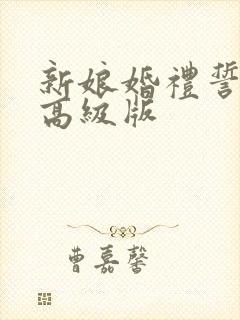 新娘婚禮誓
高級版
曹嘉馨